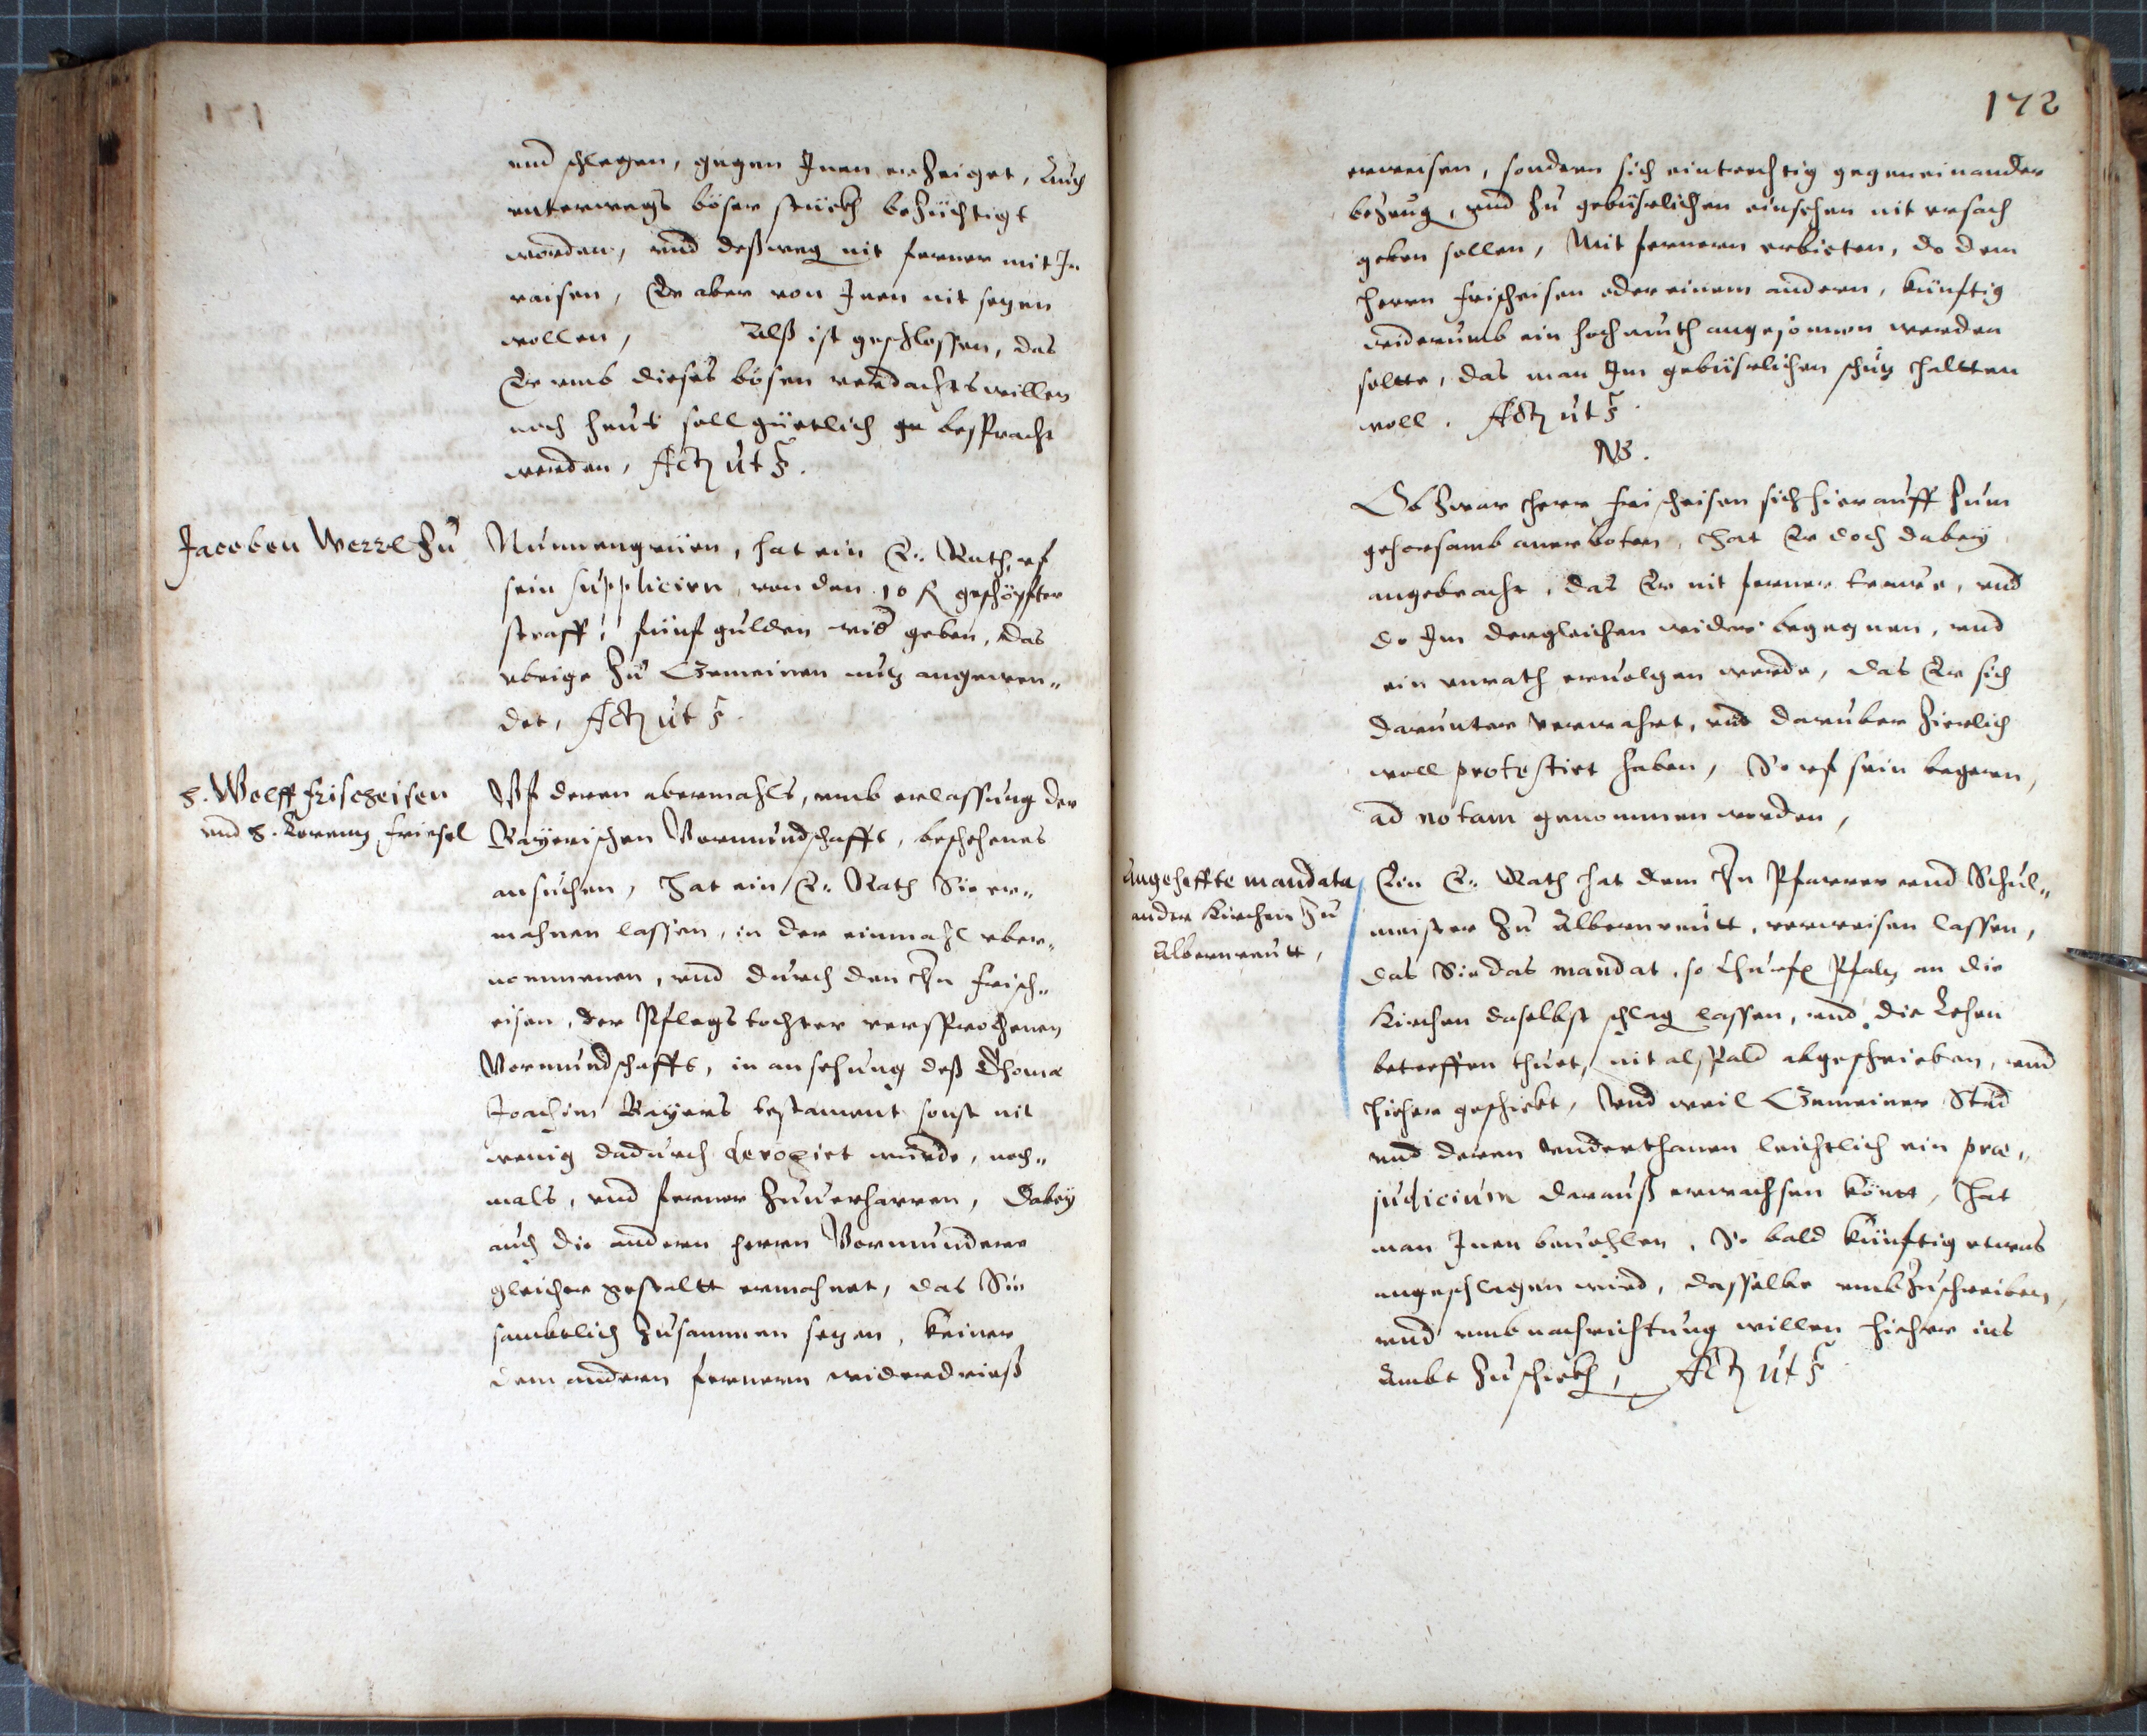 171
vnd schlegen, gegen Inen erzeiget, Auch
vnterwegs böser stückh bezüchtigt
worden, vnd deßweg nit ferner mit In
raisen, Er aber von Inen nit setzen
wollen, Alß ist geschlossen, das
Er vmb dieses bösen verdachts willen
noch heut soll güetlich ge besprecht
werden, Actum ut s.
Jacoben Werrl zu
Nunnengrüen, hat ein E: Rath, vf
sein suppliciern, von den 10 fl geschöpfter
straff, fünf gulden wid geben, das
vbrige zu Gemeinen nutz angewen„
det, Actum ut s.
H. Wolff Frischeisen
vnd H. Lorentz Friesel
Vff deren abermahls, vmb erlassung der
Bayerischen Vormundschafft, beschehenes
ansuchen, hat ein E: Rath Sie er„
mahnen lassen, in der einmahl vber„
nommenen, vnd durch den Hn Frisch„
eisen, der Pflegstochter versprochenen
Vormundschafft, in ansehung deß Thomæ
Joachim Bayers testament sonst nit
wenig dadurch derogiet wurde, noch„
mals, vnd ferner zuuerharren, Dabey
auch die andern herrn Vormundere
gleicher gestaltt ermahnet, das Sie
sambtlich zusammen setzen, keiner
dem andern fernern widerdrieß
172
erweisen, sondern sich eintrechtig gegeneinander
bezeug, vnd zu gebürlichen einsehen nit vrsach
geben sollen, Mit fernern erbieten, do dem
Herrn Frischeisen oder einem andern, künftig
widerumb ein hochmuth angesonnen werden
soltte, das man Im gebürlichen schutz haltten
woll. Actum ut s.
NB.
Ob zwar Herr Frischeisen sich hierauff zum
gehorsamb anerboten, Hat Er doch dabey
angebracht, das Er nit ferner trawe, vnd
do Im dergleichen wider begegnen, vnd
ein vnrath ervolgen werde, das Er sich
darunter verwahrt, vnd daruber zierlich
woll protestirt haben, So vf sein begeren,
ad notam genommen worden,
Angeheffte mandata
an der Kirchen zu
Albernreutt,
Ein E: Rath hat dem Hn Pfarrer vnd Schul„
meister zu Albernreutt, verweisen lassen,
das Sie das mandat, so Churf. Pfaltz an die
Kirchen daselbst schlag lassen, vnd die Lehen
betreffen thuet, nit alspald abgeschrieben, vnd
hieher geschickt, Vnd weil Gemeiner Stad
vnd deren vnderthanen leichtlich ein præ„
judicium darauß erwachsen köntt, hat
man Inen beuohlen, So bald künftig etwas
angeschlagen wird, dasselbe vmbzuschreiben,
vnd vmb nachrichtung willen hieher ins
Ambt zuschickh, Actum ut s.